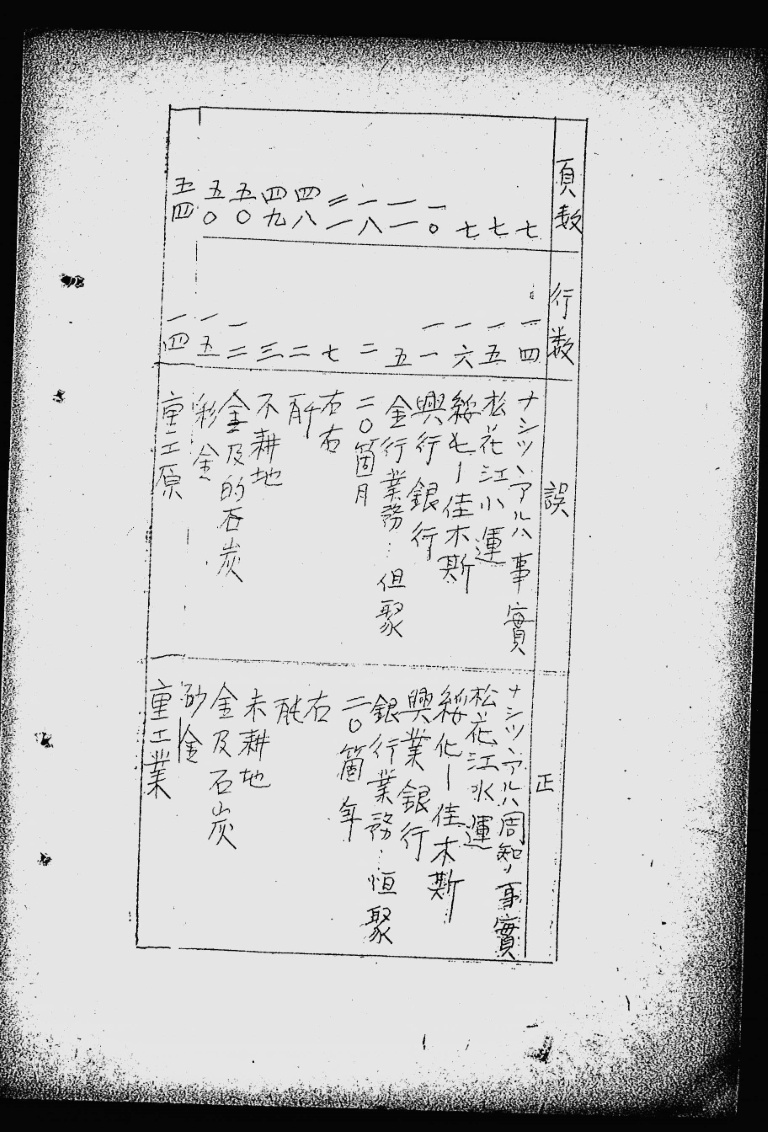 頁数 行数 誤 正
七 一四 ナシツヽアルハ事實 ナシツヽアルハ周知ノ事實
七 一五 松花江小運 松花江水運
七 一六 綏七ー佳木斯 綏化ー佳木斯
一〇 一一 興行銀行 興業銀行
一一 五 金行業務…但聚 銀行業務…恒聚
一八 二 二〇箇月 二〇箇年
二一 七 右右 右
四八 二
四九 三 不耕地 未耕地
五〇 一二 金及的石炭 金及石炭
五〇 一五 彩金 砂金
五四 一四 重工原 重工業